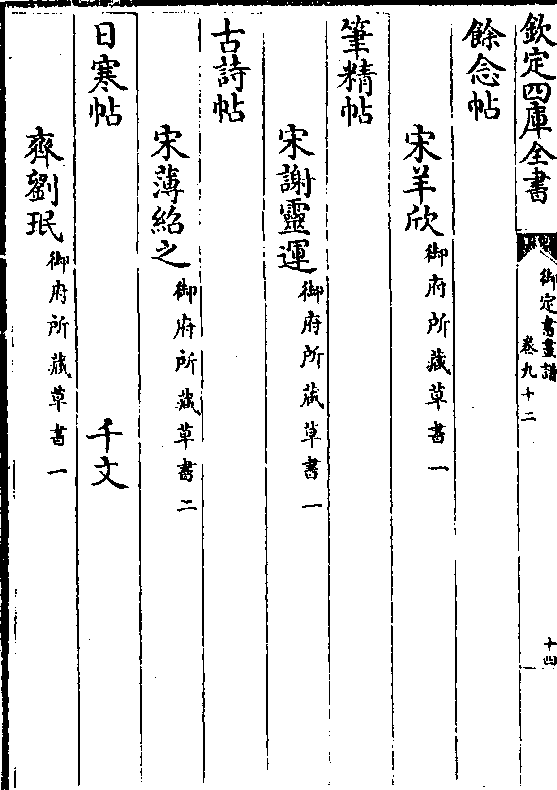 欽定四庫全書
御定書畫譜
卷九十二
十四
餘念帖
宋羊欣御府所藏草書一
筆精帖
宋謝靈運御府所藏草書一
古詩帖
宋薄紹之御府所藏草書二
日寒帖 千文
齊劉珉御府所藏草書一